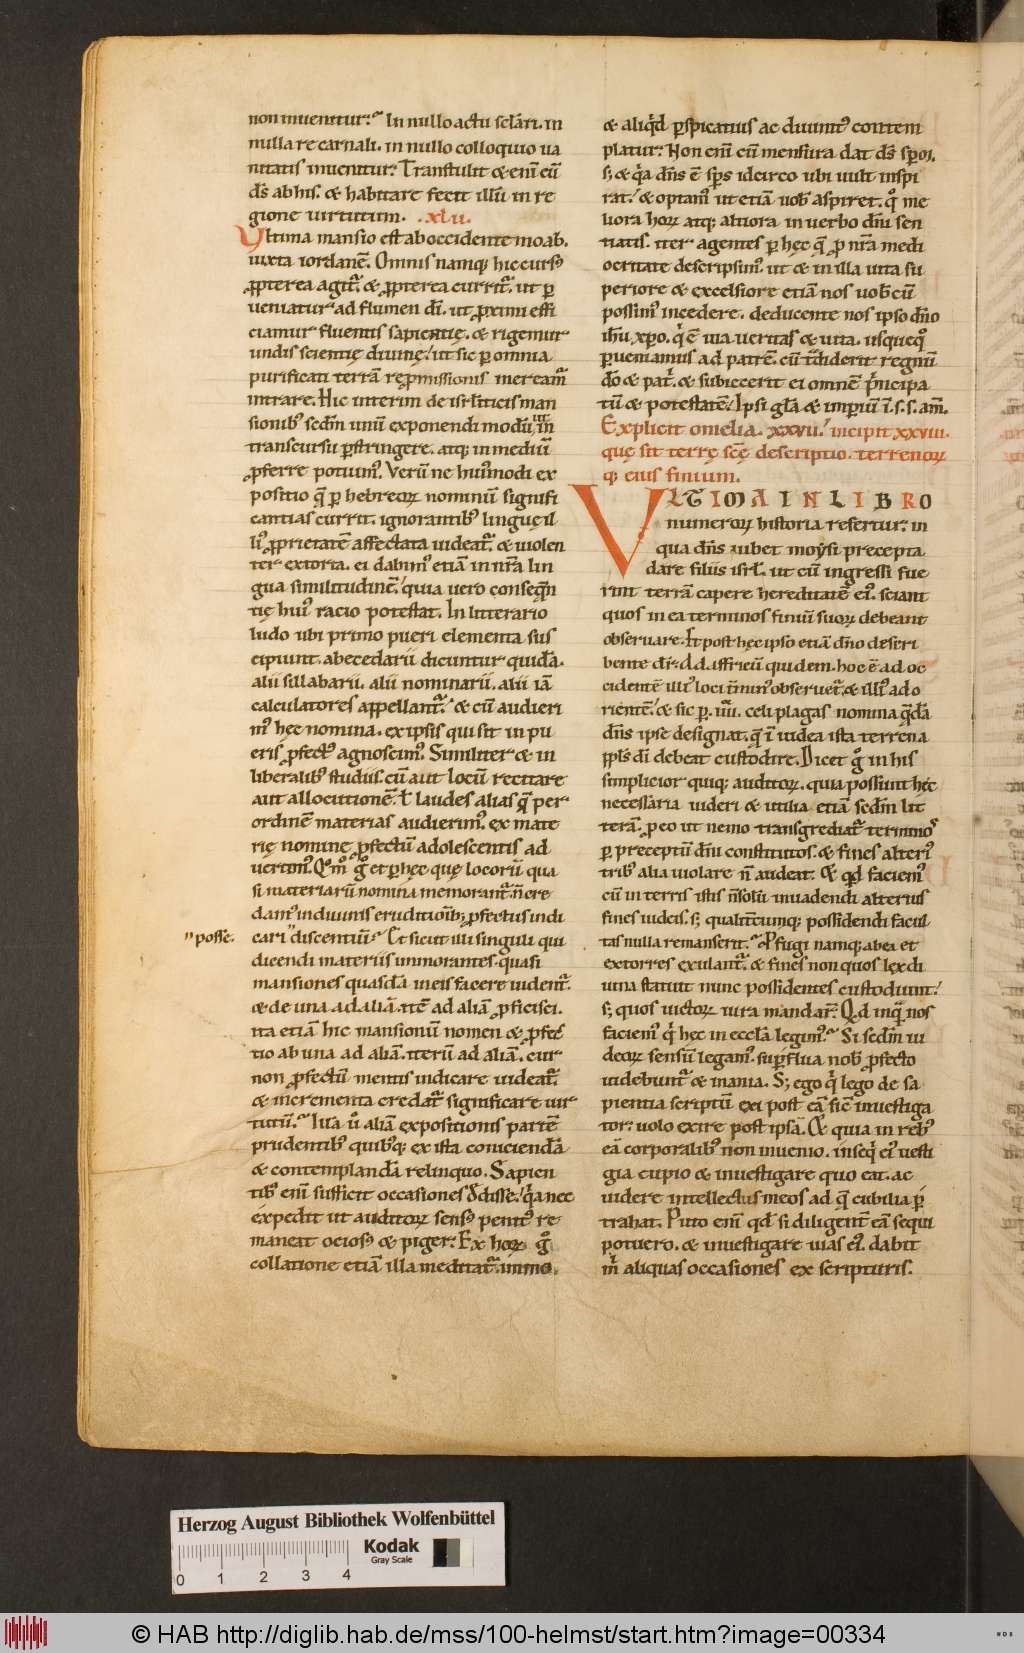 non inuenitur. In nullo actu sclari. in
nulla re carnali. in nullo colloquio ua
nitatis inuenitur. Transtulit & eni̅ eu̅
ds̅ ab his. & habitare fecit illu̅ in re
gione uirtutum. .xlv.
Vltima mansio est ab occidente moab.
iuxta iordane̅. Omnis namq; hic curs᾽
ꝓpterea agit᷑. & ꝓpterea currit᷑. ut ꝑ
ueniatur ad flumen di̅. ut ꝓximi effi
ciamur fluentis sapientię. & rigemur
undis scientię diuinę. ut sic ꝑ omnia
purificati terra̅ reꝓmissionis meream᷑
intrare. Hic interim de isrl̅iticis man
sionib᾽ sedm̅ unu̅ exponendi modu̅
transcursu ꝑstringere. atq; in mediu̅
ꝓferre potuim᾽. Veru̅ ne hui᾽modi ex
positio q̅ ꝑ hebreoꝝ nominu̅ signifi
cantias currit. ignorantib᾽ linguę il
li᾽ ꝓprietate̅ affectata uideat᷑. & uiolen
ter extorta. ei dabim᾽ etia̅ in nr̅a lin
gua similitudine̅. quia uero conseque̅
tię hui᾽ racio potestat. In litterario
ludo ubi primo pueri elementa sus
cipiunt. abecedarii dicuntur quida̅.
alii sillabarii. alii nominarii. alii ia̅
calculatores appellant᷑. & cu̅ audieri
m᾽ hęc nomina. ex ipsis qui sit in pu
eris ꝓfect᾽ agnoscim᾽. Similiter & in
liberalib᾽ studiis. cu̅ aut locu̅ recitare
aut allocutione̅. ł laudes alias q̅ per
ordine̅ materias audierim᾽. ex mate
rię nomine ꝓfectu̅ adolescentis ad
uertim᾽. Quom᾽ g° et ꝑ hęc quę locoru̅ qua
si materiaru̅ nomina memorant᷑. n̅ cre
dam᾽ in diuinis eruditioib; ꝓfectus indi
posse.
cari discentiu̅. Et sicut illi singuli qui
dicendi materiis immorantes. quasi
mansiones quasda̅ in eis facere uident᷑.
& de una ad alia̅. ite̅ ad alia̅ ꝓficisci.
ita etia̅ hic mansionu̅ nomen & ꝓfec
tio ab una ad alia̅. iteru̅ ad alia̅. cur
non ꝓfectu̅ mentis indicare uideat᷑.
& incrementa credat᷑ significare uir
tutu̅. Iusa u᾽ alia̅ expositionis parte̅
prudentib᾽ quibusq; ex ista conicienda̅
& contemplanda̅ relinquo. Sapien
tib᾽ eni̅ sufficit occasiones dedisse. q̅a nec
expedit ut auditoꝝ sens᾽ penit᾽ re
maneat ocios᾽ & piger. Ex hoꝝ g°
collatione etia̅ illa meditat᷑. immo.
& aliqd̅ ꝑspicatius ac diuinit᾽ contem
platur. Non eni̅ cu̅ mensura dat ds̅ spm̅.
s; & q̅a dn̅s e̅ sps̅ idcirco ubi uult inspi
rat. & optam᾽ ut etia̅ uob᾽ aspiret. q° me
liora hoꝝ atq; altiora in uerbo dni̅ sen
tiatis. iter agentes ꝑ hęc q̅ ꝓ nr̅a medi
ocritate descripsim᾽. ut & in illa uita su
periore & excelsiore etia̅ nos uob᾽cu̅
possim᾽ incedere. deducente nos ipso dn̅o
ihu̅ xpo̅. qi e̅ uia ueritas & uita. usquequo
ꝑueniamus ad patre̅. cu̅ tradiderit regnu̅
do̅ & patri. & subiecerit ei omne̅ principa
tu̅ & potestate̅. Ipsi gl̅a & imperiu̅ i̅. s. s. am̅.
Explicit omelia. xxvii. incipit xxviii.
que sit terrę scę̅ descriptio. terrenoꝝ
q; eius finium.
VLTIMA IN LIBRO
numeroꝝ historia refertur. in
qua dn̅s iubet moysi precepta
dare filiis isrl̅. ut cu̅ ingressi fue
rint terra̅ capere hereditate̅ ei᾽. sciant
quos in ea terminos finiu̅ suoꝝ debeant
obseruare. Et post hęc ipso etia̅ dn̅o descri
bente dr̅. ad affricu̅ quidem. hoc e̅ ad oc
cidente̅ illi᾽ loci t̅min᾽ obseruet᷑. & illi᾽ ad o
riente̅. & sic ꝑ. iiii. celi plagas nomina queda̅
dn̅s ipse designat. q̅ i̅ iudea ista terrena
ppl̅s di̅ debeat custodire. Dicet g° in his
simplicior quiq; auditoꝝ. quia possunt hęc
necessaria uideri & utilia etia̅ sedm̅ lit
tera̅. ꝓ eo ut nemo transgrediat᷑ termino᾽
ꝑ preceptu̅ dni̅ constitutos. & fines alteri᾽
trib᾽ alia uiolare n̅ audeat. Et quid faciem᾽
cu̅ in terris istis n̅ solu̅ inuadendi alterius
fines iudeis. s; qualitercumq; possidendi facul
tas nulla remanserit. Ꝓfugi namq; abea et
extorres exulant᷑. & fines non quos lex di
uina statuit nunc possidentes custodiunt.
s; quos uictoꝝ iura mandar̅. Quid inqua̅ nos
faciem᾽ qi hęc in eccla̅ legim᾽. Si sedm̅ iu
deoꝝ sensu̅ legam᾽. suꝑflua nob᾽ ꝓfecto
uidebunt᷑ & inania. S; ego qi lego de sa
pientia scriptu̅ exi post ea̅ sic̅ inuestiga
tor. uolo exire post ipsa̅. Et quia in reb᾽
ea̅ corporalib᾽ non inuenio. insequi ei᾽ uesti
gia cupio & inuestigare quo eat. ac
uidere intellectus meos ad q̅ cubilia ꝑ
trahat. Puto eni̅ qd̅ si diligent̅ ea̅ sequi
potuero. & inuestigare uias ei᾽. dabit
m̅ aliquas occasiones ex scripturis.
Herzog August Bibliothek Wolfenbüttel
Kodak
Gray Scale
0 1 2 3 4
© HAB http://diglib.hab.de/mss/100-helmst/start.htm?image=00334